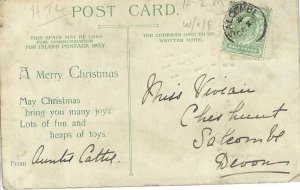 POST CARD.
THIS SPACE MAY BE USED
FOR COMMUNICATION
FOR INLAND POSTAGE ONLY.
THE ADDRESS ONLY TO BE
WRITTEN HERE.
A Merry Christmas
May Christmas
bring you many joys
Lots of fun and
heaps of toys.
From Auntie Cattie.
Miss Vivian
Cheshunt
Salcombe
Devon